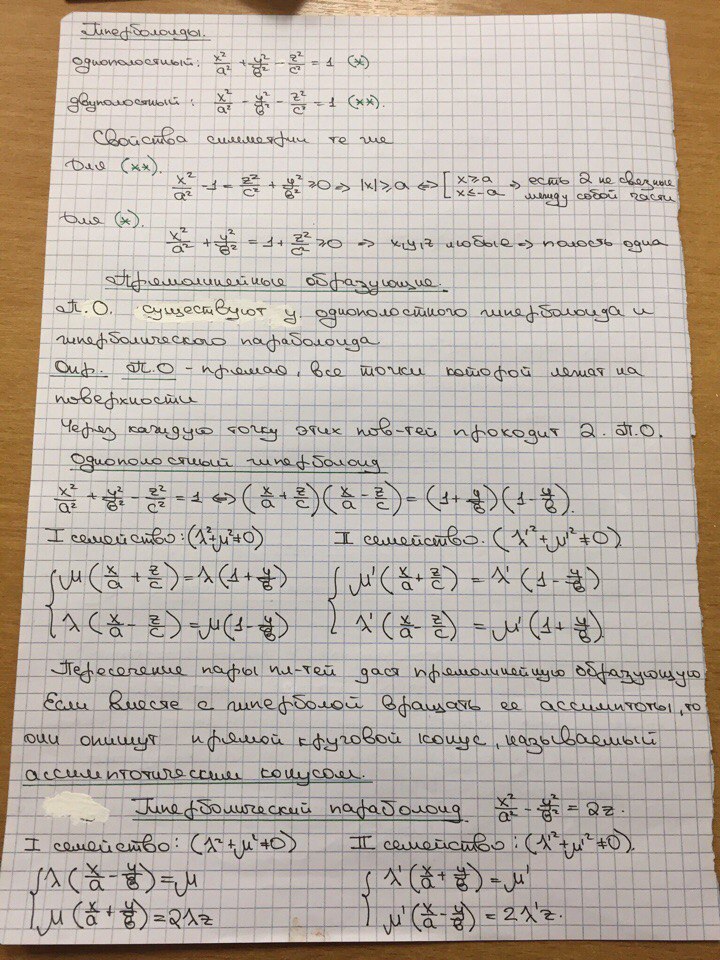 Гиперболоиды.
однополостный: x²/a² + y²/b² - z²/c² = 1 (*)
двуполостный: x²/a² - y²/b² - z²/c² = 1 (**).
Свойства симметрии те же
Для (**). x²/a² - 1 = z²/c² + y²/b² ≥ 0 => |x| ≥ a <=> [ x ≥ a x ≤ -a => есть 2 не связные между собой части
Для (*).
x²/a² + y²/b² = 1 + z²/c² ≥ 0 => x, y, z любые => полость одна
Прямолинейные образующие.
П.О. существуют у однополостного гиперболоида и
гиперболического параболоида
Опр. П.О - прямая, все точки которой лежат на
поверхности
Через каждую точку этих пов-тей проходит 2 П.О.
Однополостный гиперболоид
x²/a² + y²/b² - z²/c² = 1 <=> (x/a + z/c)(x/a - z/c) = (1 + y/b)(1 - y/b).
I семейство: (λ² + μ² ≠ 0) II семейство. (λ'² + μ'² ≠ 0)
{ μ(x/a + z/c) = λ(1 + y/b) { μ'(x/a + z/c) = λ'(1 - y/b)
λ(x/a - z/c) = μ(1 - y/b) λ'(x/a - z/c) = μ'(1 + y/b)
Пересечение пары пл-тей даст прямолинейную образующую
Если вместе с гиперболой вращать ее ассимптоты, то
они опишут прямой круговой конус, называемый
ассимптотическим конусом.
Гиперболический параболоид x²/a² - y²/b² = 2z.
I семейство: (λ² + μ² ≠ 0) II семейство: (λ'² + μ'² ≠ 0).
{ λ(x/a - y/b) = μ { λ'(x/a + y/b) = μ'
μ(x/a + y/b) = 2λz μ'(x/a - y/b) = 2λ'z.